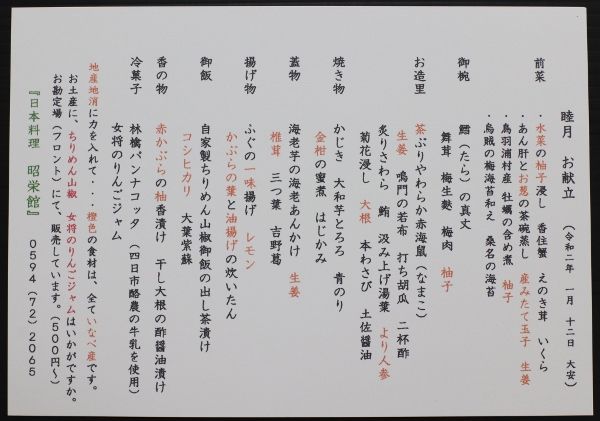 睦月 お献立 (令和二年 一月 十二日 大安)
前菜 ・水菜の柚子浸し 香住蟹 えのき茸 いくら
・あん肝とお葱の茶碗蒸し 産みたて玉子 生姜
・鳥羽浦村産 牡蠣の含め煮 柚子
・烏賊の梅海苔和え 桑名の海苔
御椀 鱈(たら)の真丈
舞茸 梅生麩 梅肉 柚子
お造里 茶ぶりやわらか赤海鼠(なまこ)
生姜 鳴門の若布 打ち胡瓜 二杯酢
炙りさわら 鮪 汲み上げ湯葉 より人参
菊花浸し 大根 本わさび 土佐醤油
焼き物 かじき 大和芋とろろ 青のり
金柑の蜜煮 はじかみ
蓋物 海老芋の海老あんかけ 生姜
椎茸 三つ葉 吉野葛
揚げ物 ふぐの一味揚げ レモン
かぶらの葉と油揚げの炊いたん
御飯 自家製ちりめん山椒御飯の出し茶漬け
コシヒカリ 大葉紫蘇
香の物 赤かぶらの柚香漬け 干し大根の酢醤油漬け
冷菓子 林檎パンナコッタ (四日市酪農の牛乳を使用)
女将のりんごジャム
地産地消に力を入れて・・・橙色の食材は、全ていなべ産です。
お土産に、ちりめん山椒 女将のりんごジャムはいかがですか。
お勘定場(フロント)にて、販売しています。(500円~)
『日本料理 昭栄館』 0594(72)2065